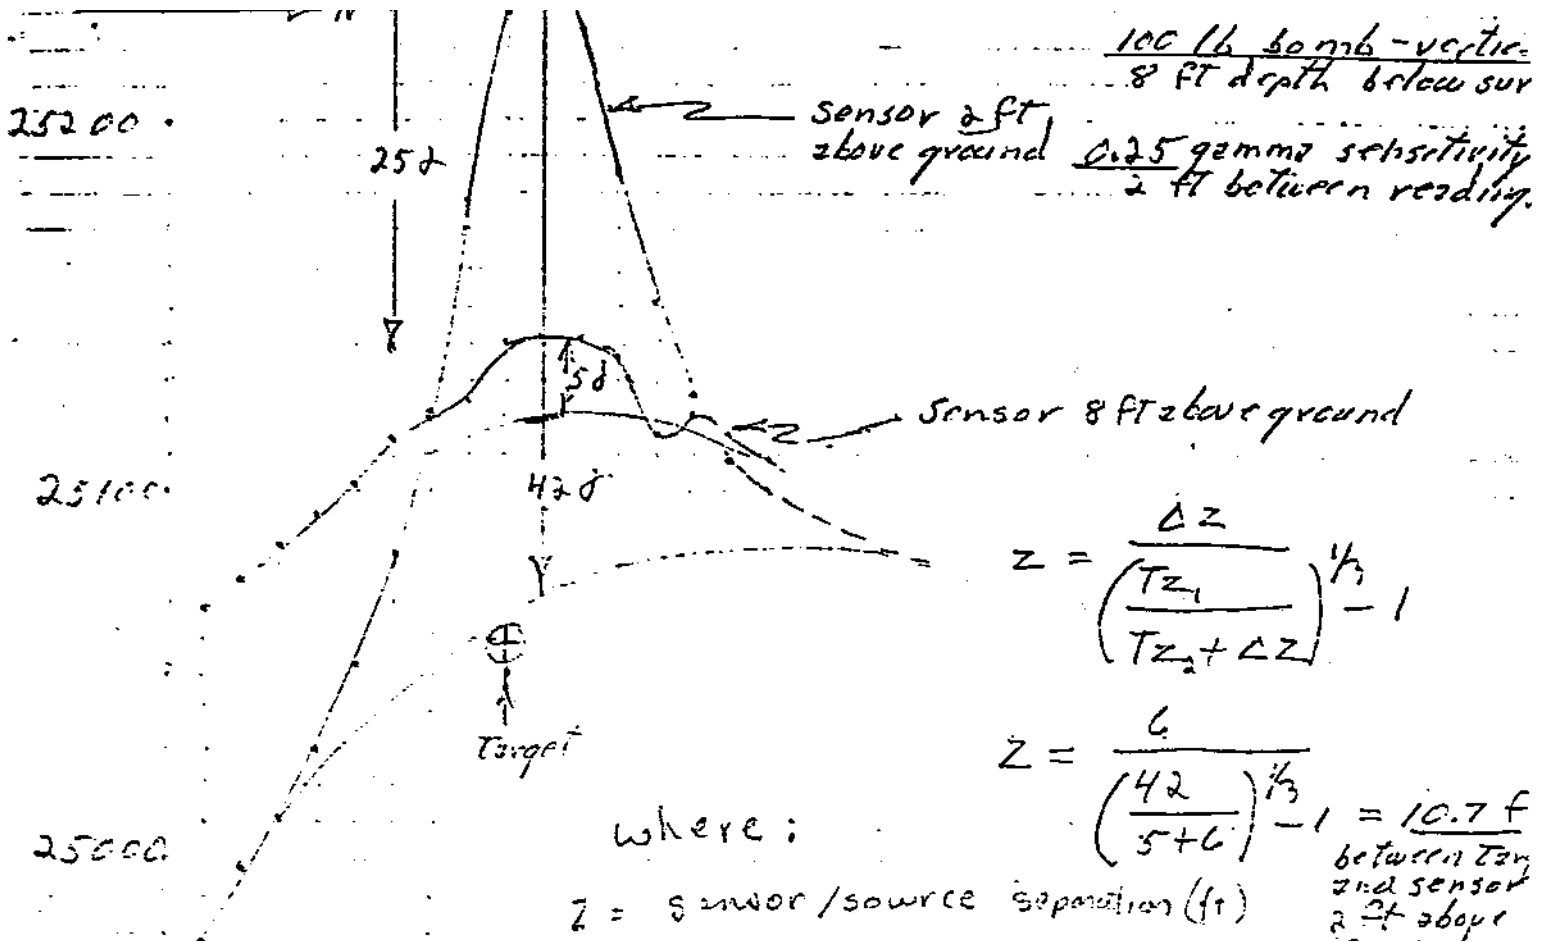 N
100 lb bomb - vertic
8 ft depth below sur
25200
25γ
Sensor 2 ft
above ground
0.25 gamma sensitivity
2 ft between reading.
5γ
Sensor 8 ft above ground
25100
42γ
z = Δz / (Tz₁ / Tz₂+Δz)^1/3 - 1
Target
z = 6 / (42 / 5+6)^1/3 - 1 = 10.7 f
between Tar
and sensor
2 ft above
25000
where:
z = sensor/source separation (ft)